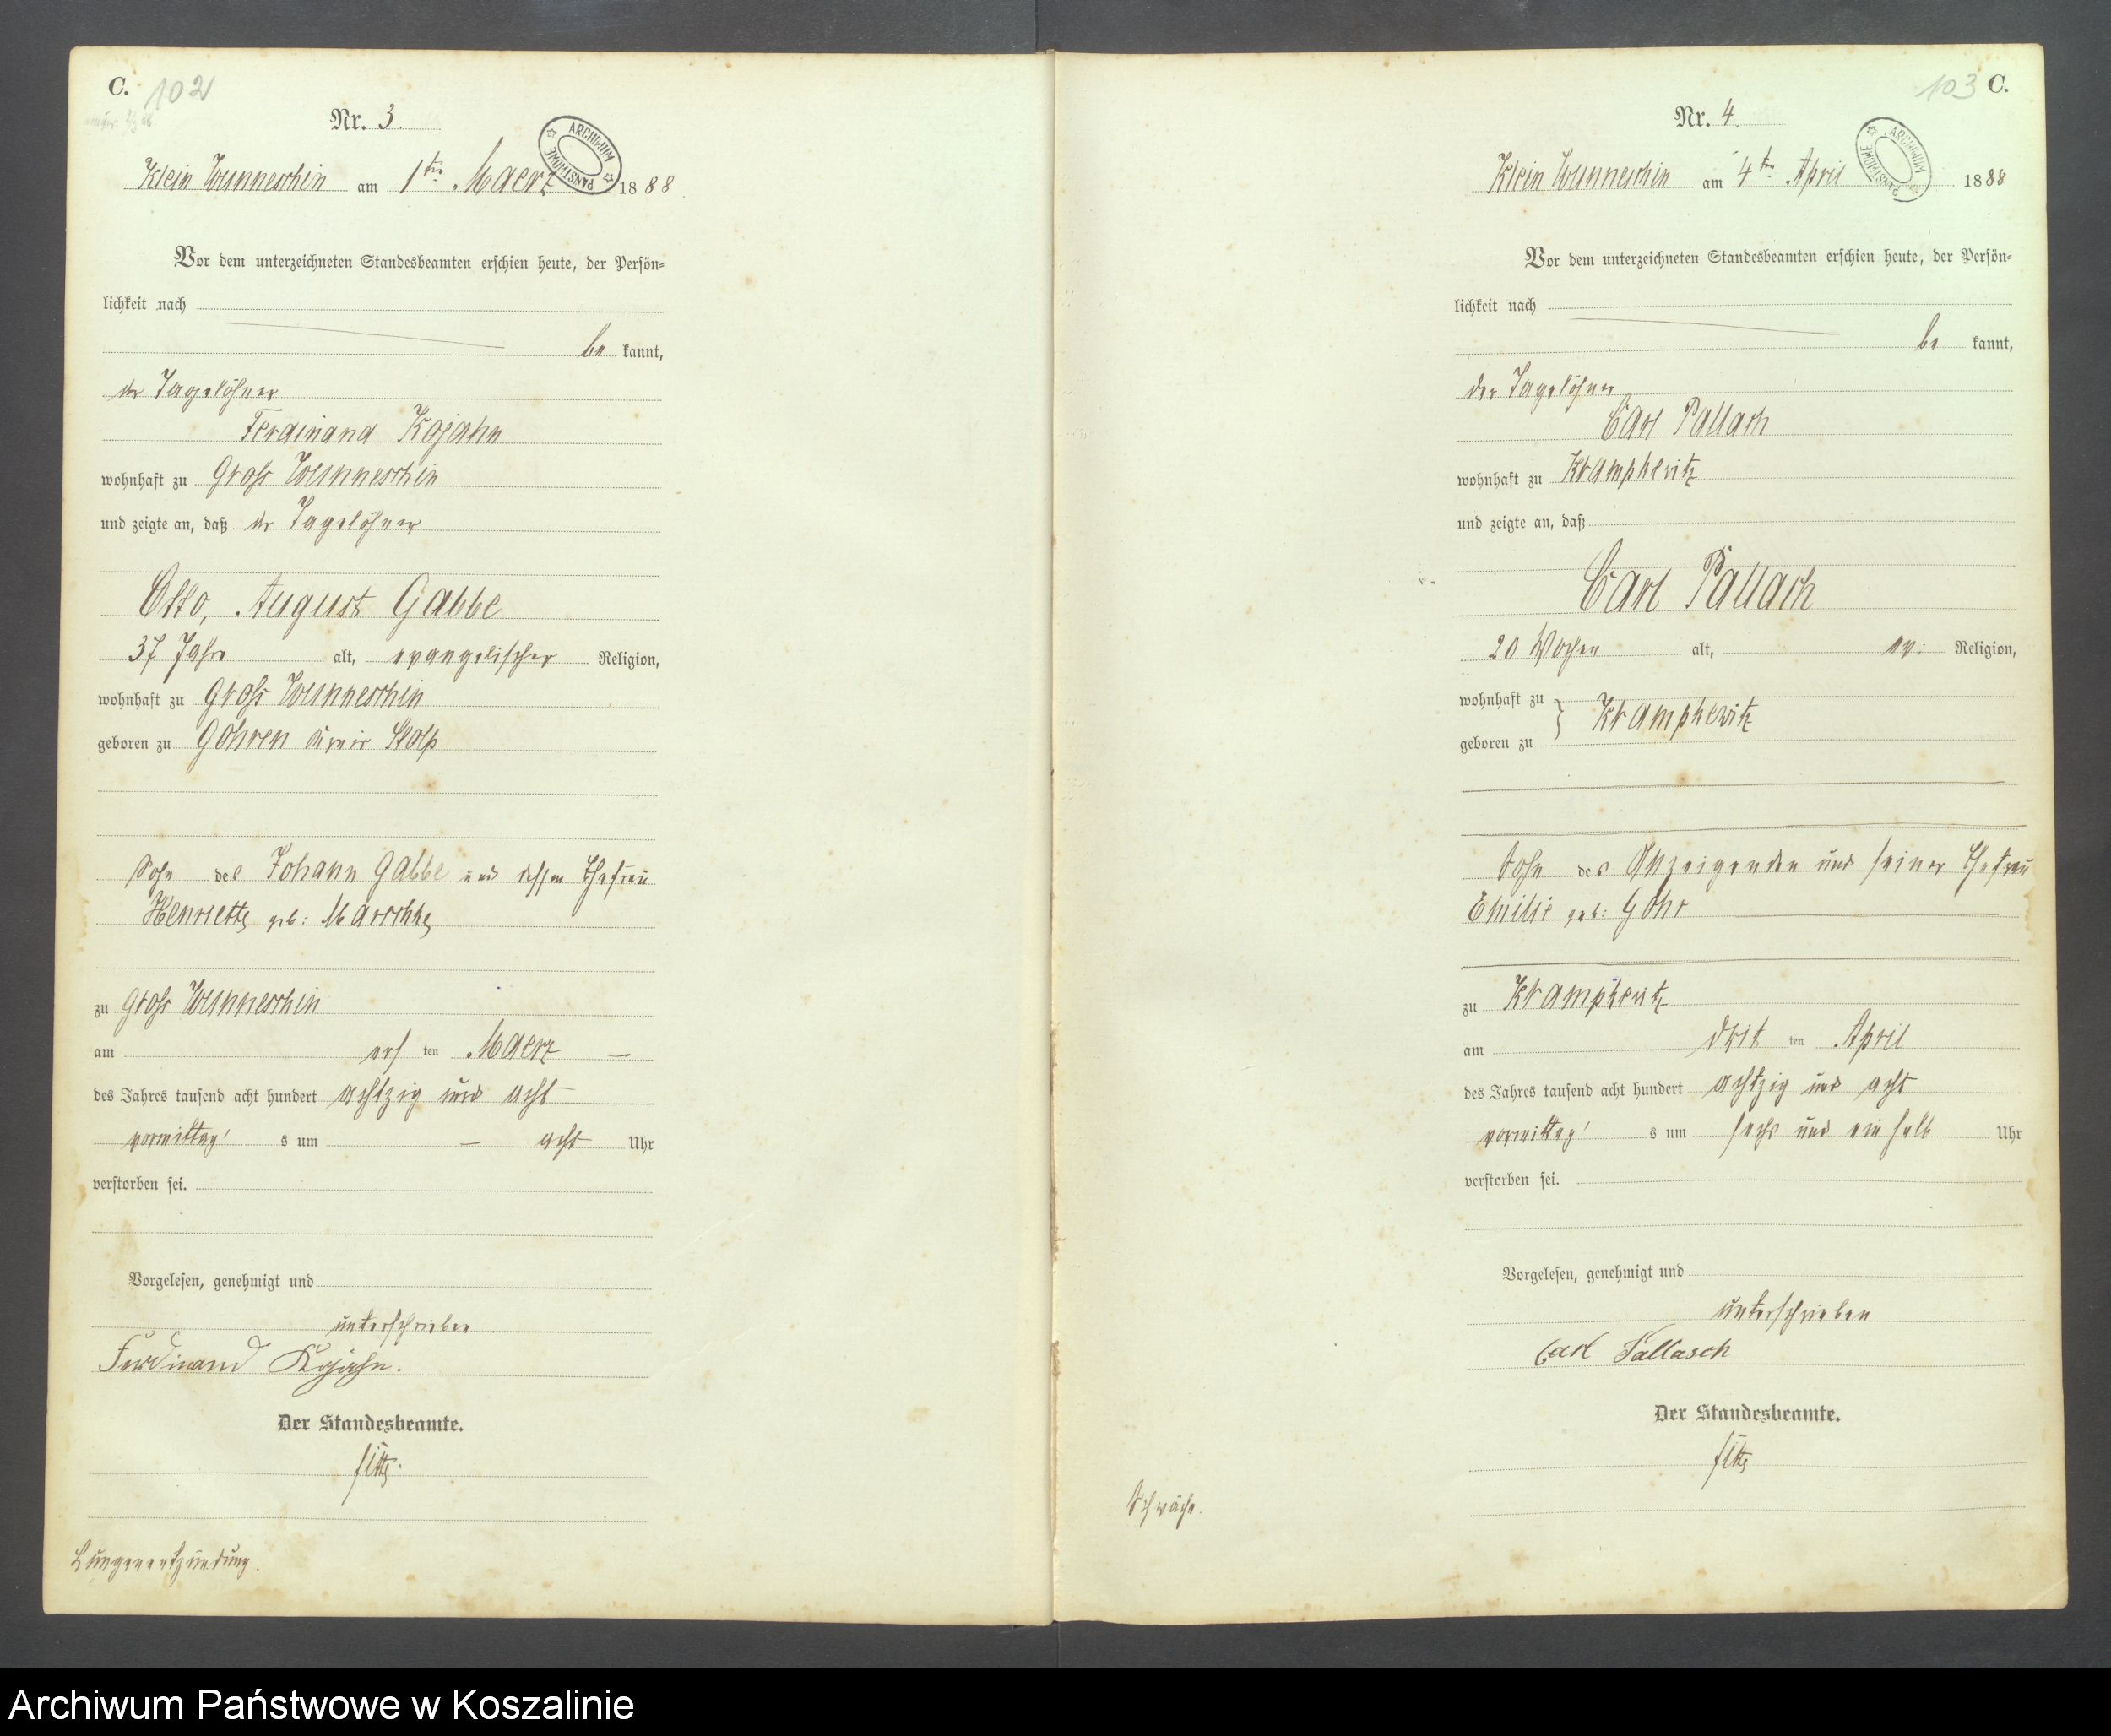 C. 102
Nr. 3.
ARCHIWUM PAŃSTWOWE
Klein Wunneschin am 1ten Maerz 1888
Vor dem unterzeichneten Standesbeamten erschien heute, der Persön-
lichkeit nach
be kannt,
der Tagelöhner
Ferdinand Kojahn
wohnhaft zu Groß Wunneschin
und zeigte an, daß der Tagelöhner
Otto, August Gabbe
37 Jahre alt, evangelischer Religion,
wohnhaft zu Groß Wunneschin
geboren zu Gohren Kreis Stolp
Sohn des Johann Gabbe und dessen Ehefrau
Henriette geb: Marschke
zu Groß Wunneschin
am ersten Maerz
des Jahres tausend acht hundert achtzig und acht
vormittags um acht Uhr
verstorben sei.
Vorgelesen, genehmigt und
unterschrieben
Ferdinand Kojahn.
Der Standesbeamte.
Lungenentzündung.
103 C.
Nr. 4.
ARCHIWUM PAŃSTWOWE
Klein Wunneschin am 4ten April 1888
Vor dem unterzeichneten Standesbeamten erschien heute, der Persön-
lichkeit nach
be kannt,
der Tagelöhner
Carl Pallasch
wohnhaft zu Krampkewitz
und zeigte an, daß
Carl Pallasch
20 Wochen alt, ev: Religion,
wohnhaft zu } Krampkewitz
geboren zu
Sohn des Anzeigenden und seiner Ehefrau
Emilie geb: Gohr
zu Krampkewitz
am dritten April
des Jahres tausend acht hundert achtzig und acht
vormittags um sechs und ein halb Uhr
verstorben sei.
Vorgelesen, genehmigt und
unterschrieben
Carl Pallasch
Der Standesbeamte.
Schwäche.
Archiwum Państwowe w Koszalinie